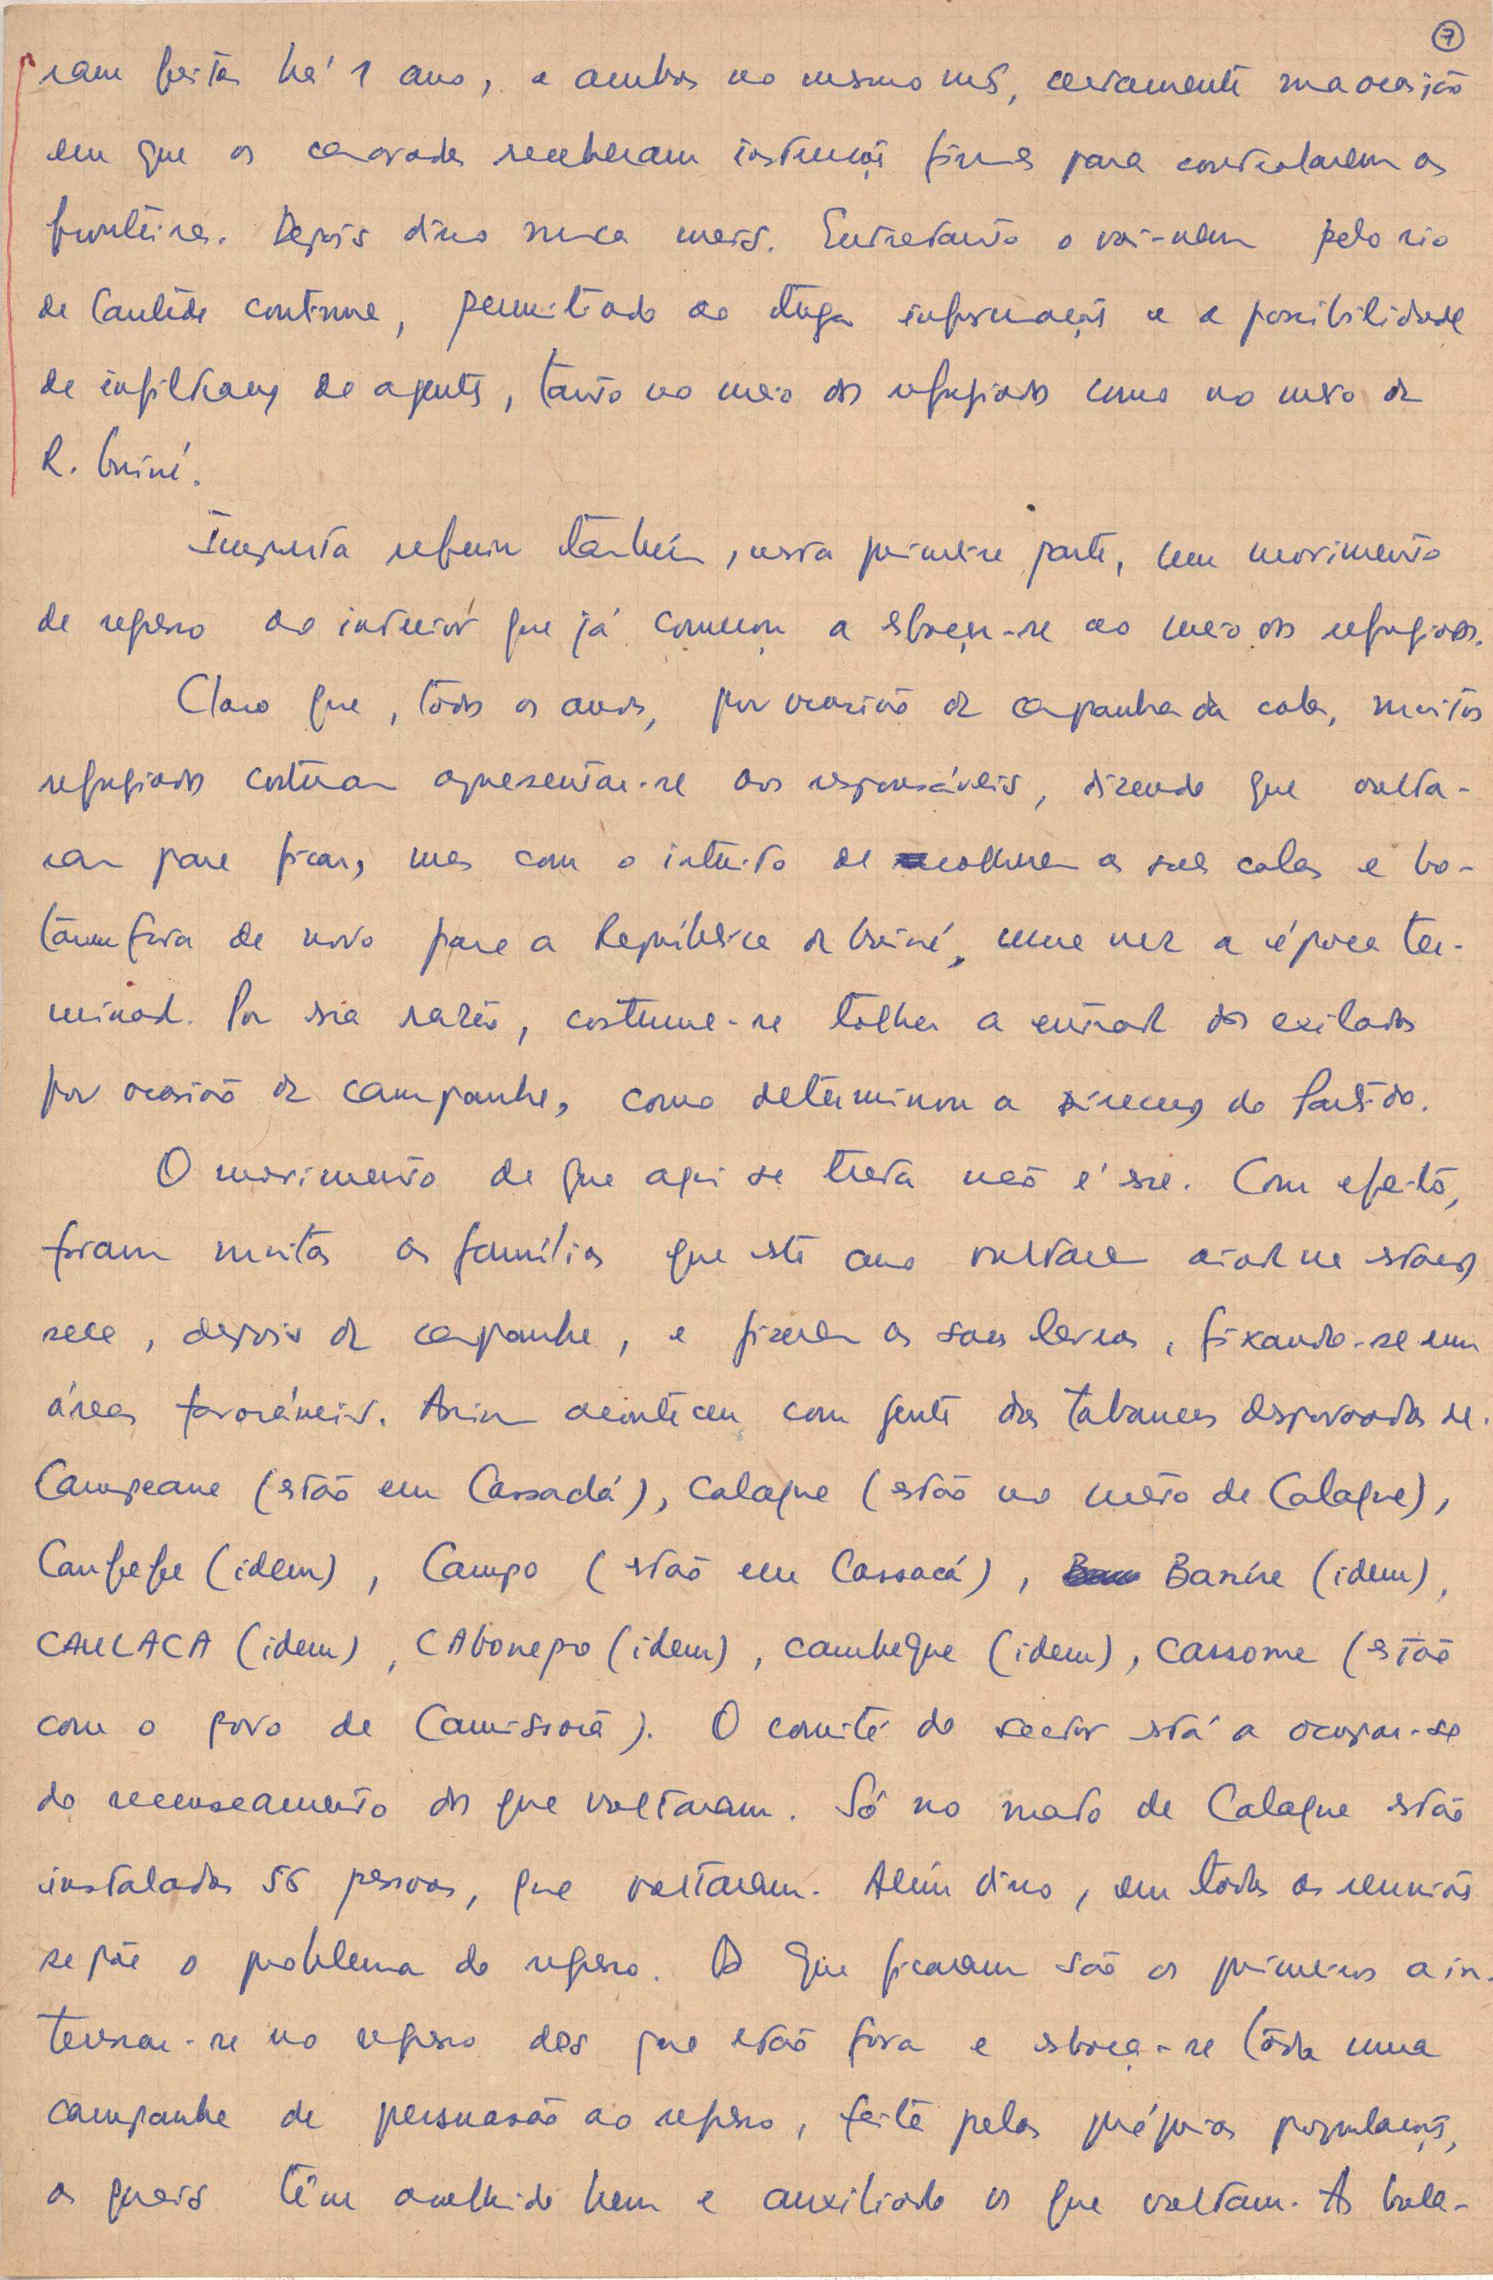 7
ram feitas há 1 ano, e ambas no mesmo mês, certamente na ocasião
em que os camaradas receberam instruções firmes para controlarem as
fronteiras. Depois disso nunca mais. Entretanto o vai-vem pelo rio
de continua, permitindo ao tuga informações e a possibilidade
de infiltração de agentes, tanto no meio dos refugiados como no meio da
R. Guiné.
Importa referir também, nesta primeira parte, um movimento
de regresso ao interior que já começou a esboçar-se ao meio dos refugiados.
Claro que, todos os anos, por ocasião da campanha da cola, muitos
refugiados costumam apresentar-se aos responsáveis, dizendo que volta-
ram para ficar, mas com o intuito de colherem as suas colas e bo-
tarem fora de novo para a República da Guiné, uma vez a época ter-
minada. Por essa razão, costuma-se tolher a entrada dos exilados
por ocasião da campanha, como determinou a direcção do Partido.
O movimento de que aqui se trata não é esse. Com efeito,
foram muitas as famílias que este ano voltaram ainda na estação
seca, depois da campanha, e fizeram as suas lavras, fixando-se em
áreas favoráveis. Assim aconteceu com gente das tabancas despovoadas de
Campeane (estão em Cassacá), Calaque (estão no mato de Calaque),
Canfefe (idem), Campo (estão em Cassacá), Banire (idem),
CAULACA (idem), CAbonepo (idem), cambeque (idem), cassome (estão
com o povo de Camissorã). O comité do sector está a ocupar-se
do recenseamento dos que voltaram. Só no mato de Calaque estão
instaladas 56 pessoas, que voltaram. Além disso, em todas as reuniões
se põe o problema do regresso. Os que ficaram são os primeiros a in-
teressar-se no regresso dos que estão fora e esboça-se toda uma
campanha de persuasão ao regresso, feita pelas próprias populações,
as quais têm acolhido bem e auxiliado os que voltam. As bala-